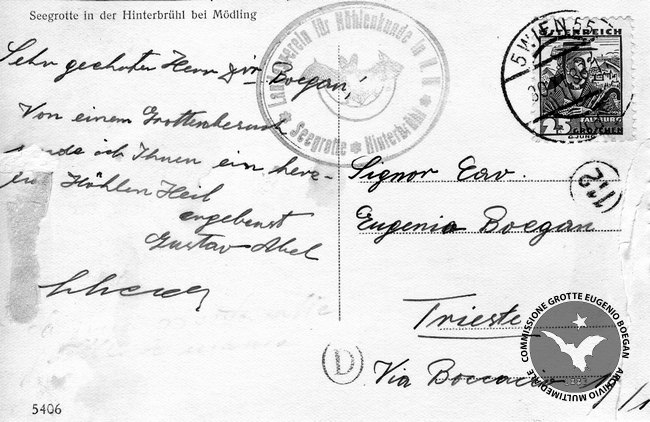 Seegrotte in der Hinterbrühl bei Mödling
Sehr geehrter Herr Dir. Boegan!
Von einem Grottenbesuch
sende ich Ihnen ein herz-
Höhlen Heil
ergebenst
Gustav Abel
Landesverein für Höhlenkunde in N.Ö.
Seegrotte * Hinterbrühl
5 WIEN 55
ÖSTERREICH
SALZBURG
GROSCHEN
112
Signor Cav.
Eugenio Boegan
Trieste
Via Boccaccio
D
5406
COMMISSIONE GROTTE EUGENIO BOEGAN
ARCHIVIO MULTIMEDIALE
1883